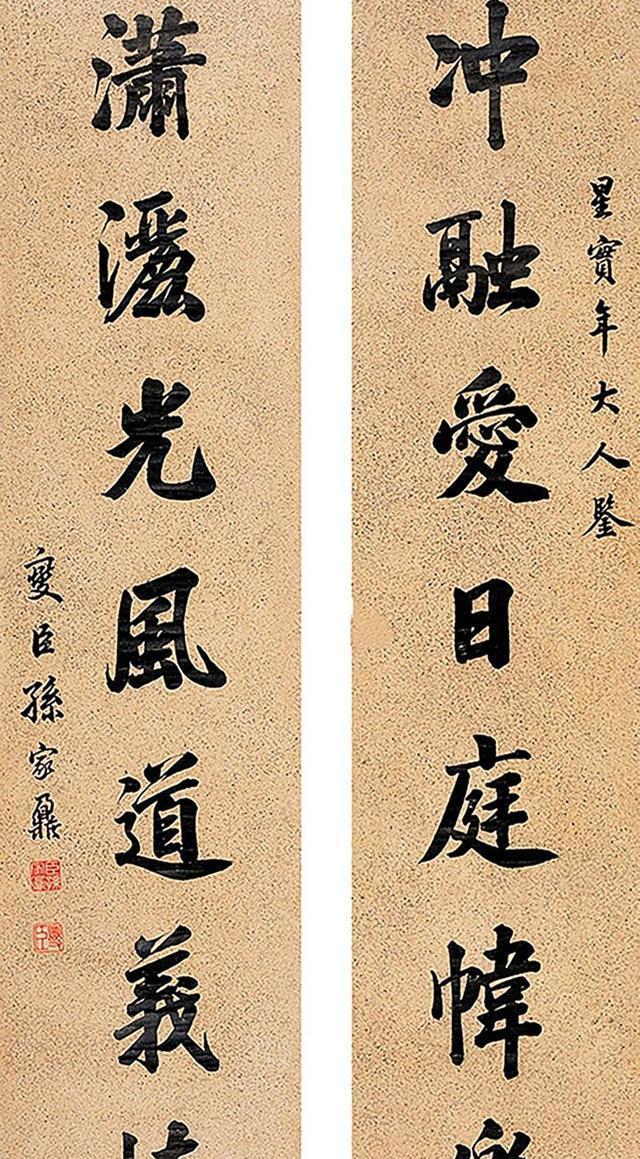 星寶年大人鑒
冲融愛日庭幃
瀟灑光風道義
燮臣孫家鼐